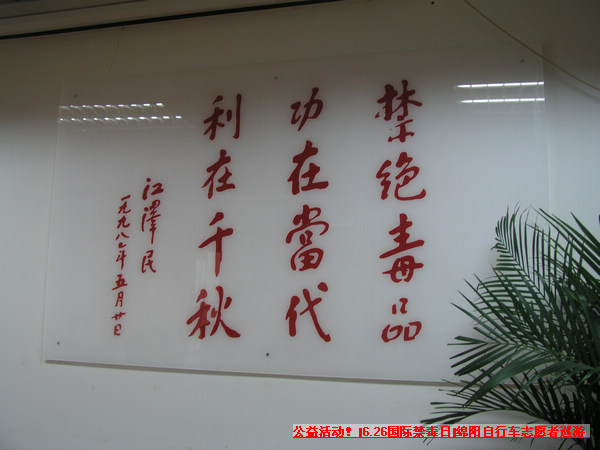 禁绝毒品
功在當代
利在千秋
江澤民
一九九八年五月廿日
公益活动！6.26国际禁毒日绵阳自行车志愿者巡游